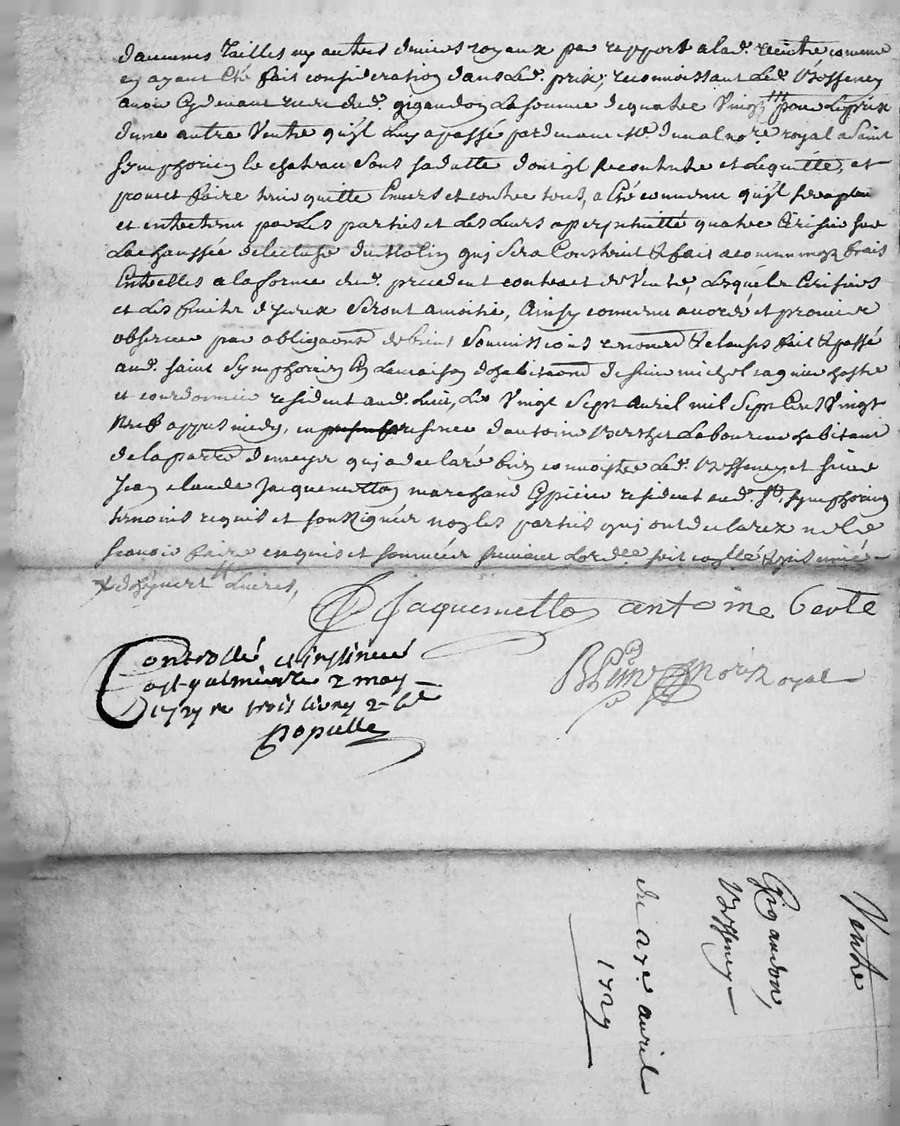 daucunes tailles ny autres deniers royaux par rapport a lad. vente comme
en ayant été fait consideration dans led. prix, reconnoissant led.
avoir cydevant receu dud. gigandon la somme de quatre vingt pour le prix
dune autre vente quil luy a passé pardevant Me. duval nore. royal a Saint
Symphorien le chateau sous sa datte dont il se contente et le quitte, et
promet faire tenir quitte envers et contre tous, a été convenu quil sera
et entretenu par les parties et les leurs a perpetuitté quatre cerisiers sur
la chaussée de lecluse du Molin qui sera construit & fait a communs frais
entrelles a la forme dud. precedent contract de vente, lesquels cerisiers
et les fruits diceux seront a moitié, Ainsy convenu accordé et promis
observer par obligaons de biens soumissions renond & clauses fait & passé
aud. saint Symphorien en la maison dhabitaon de sieur michel hoste
et cordonnier resident aud. lieu, le vingt sept avril mil sept cens vingt
neuf appres midy, en presence dantoine laboureur habitant
de la parre de meys qui a declaré bien connoistre led. et sieur
Jean claude Jacquemetton marchand Epicier resident aud. St. Symphorien
temoins requis et soussignés non les parties qui ont declarez ne le
scavoir faire enquis et sommées
livres,
Jaquemetton antoine
noire Royal
Controllé et insinué
a St galmier le 2 may
1729 Re trois livres 2
populle
Vente
Gigandon,
du 27e. avril
1729